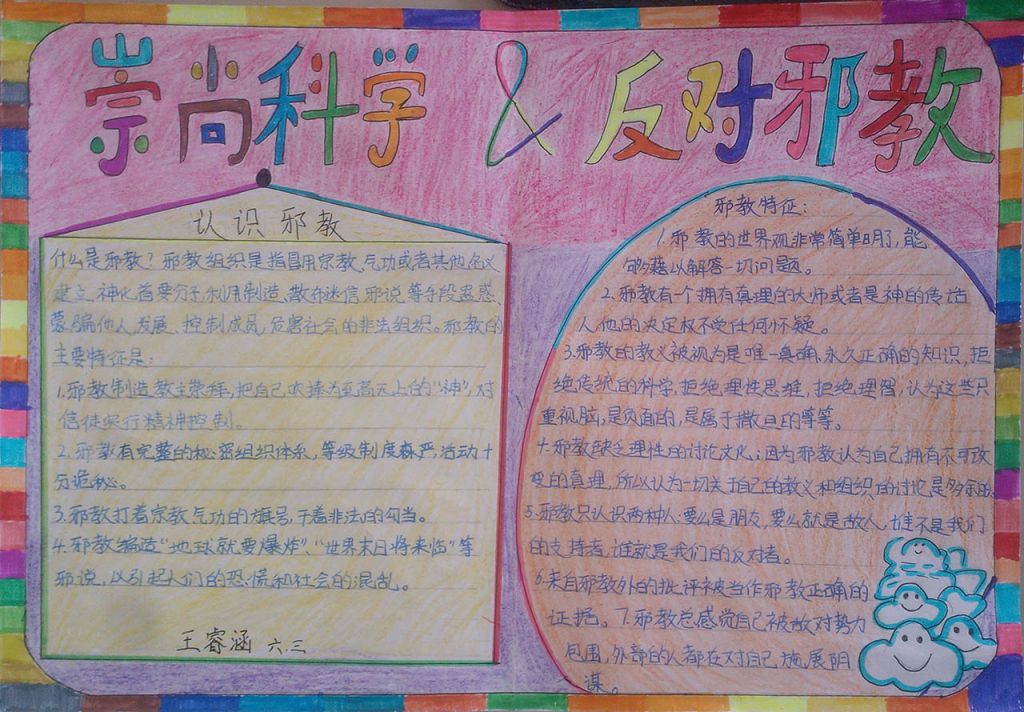 崇尚科学 & 反对邪教
认识邪教
什么是邪教？邪教组织是指冒用宗教、气功或者其他名义
建立、神化首要分子,利用制造、散布迷信邪说等手段蛊惑、
蒙骗他人,发展、控制成员,危害社会的非法组织。邪教的
主要特征是：
1.邪教制造教主崇拜,把自己吹捧为至高无上的“神”,对
信徒实行精神控制。
2.邪教有完整的秘密组织体系,等级制度森严,活动十
分诡秘。
3.邪教打着宗教气功的旗号,干着非法的勾当。
4.邪教编造“地球就要爆炸”、“世界末日将来临”等
邪说,以引起人们的恐慌和社会的混乱。
王睿涵 六.三
邪教特征：
1.邪教的世界观非常简单明了,能
够藉以解答一切问题。
2.邪教有一个拥有真理的大师或者是神的传话
人,他的决定权不受任何怀疑。
3.邪教的教义被视为是唯一真确,永久正确的知识,拒
绝传统的科学,拒绝理性思维,拒绝理智,认为这些只
重视脑,是负面的,是属于撒旦的等等。
4.邪教缺乏理性的讨论文化；因为邪教认为自己拥有不可改
变的真理,所以认为一切关于自己的教义和组织的讨论是多余的。
5.邪教只认识两种人:要么是朋友,要么就是敌人,谁不是我们
的支持者,谁就是我们的反对者。
6.来自邪教外的批评被当作邪教正确的
证据。7.邪教总感觉自己被敌对势力
包围,外部的人都在对自己施展阴
谋。